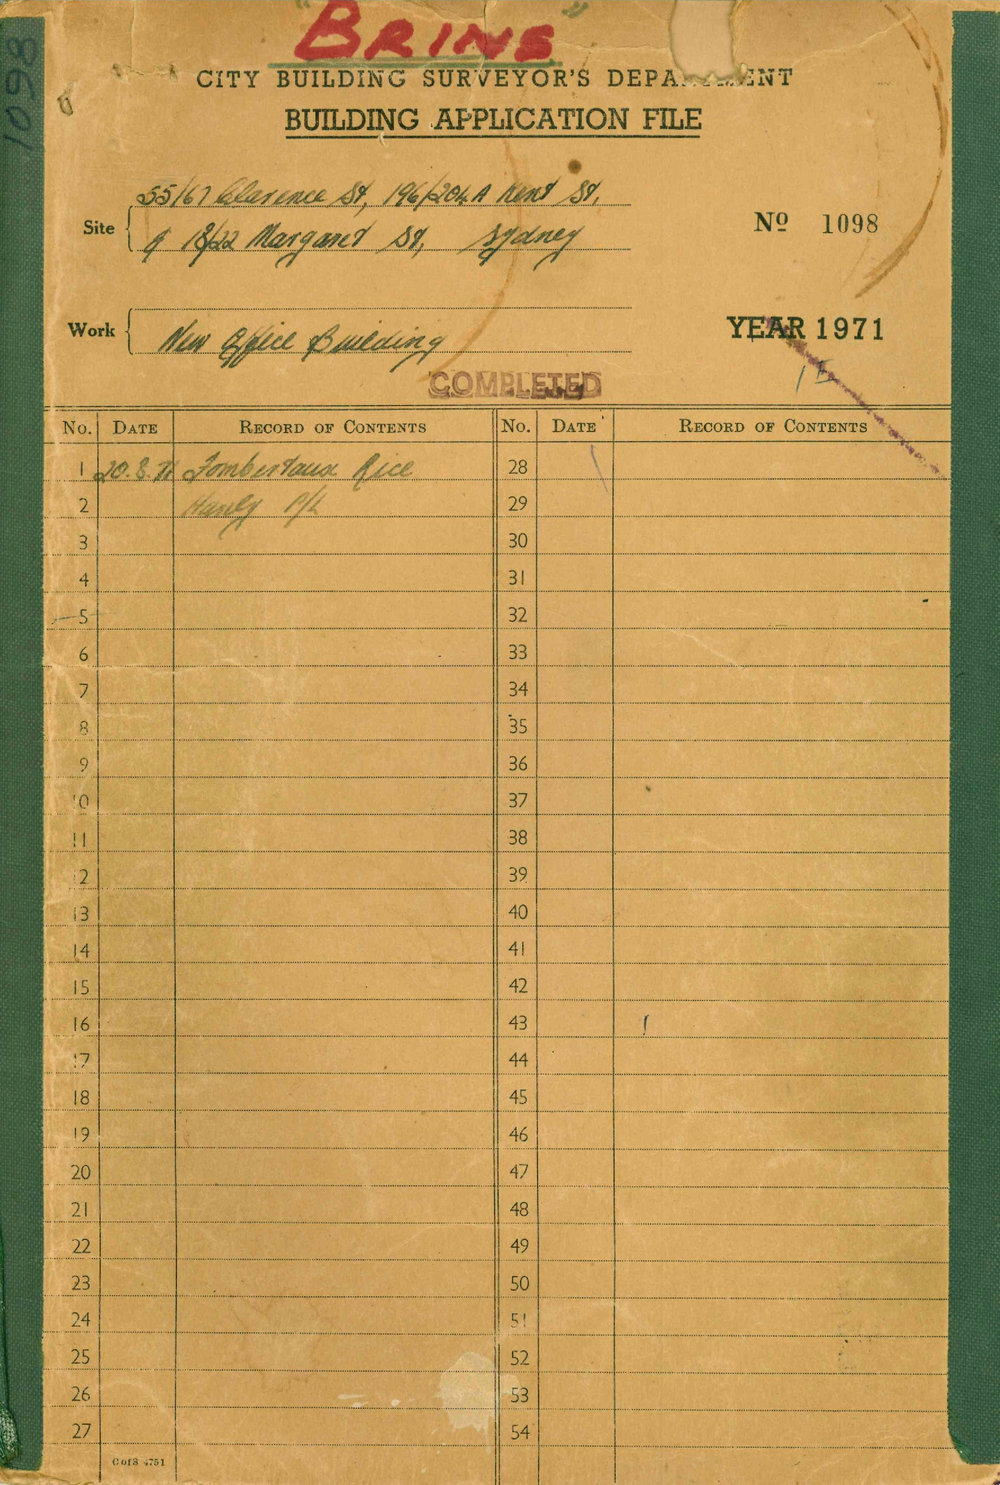 "BRINS"
1098
CITY BUILDING SURVEYOR'S DEPARTMENT
BUILDING APPLICATION FILE
Site 55/67 Clarence St, 196/204A Kent St,
& 18/22 Margaret St, Sydney
No 1098
Work New Office Building
YEAR 1971
COMPLETED
No. DATE RECORD OF CONTENTS No. DATE RECORD OF CONTENTS
1 20.8.71 Fombertaux Rice 28
2 Hanly P/L 29
3 30
4 31
5 32
6 33
7 34
8 35
9 36
10 37
11 38
12 39
13 40
14 41
15 42
16 43
17 44
18 45
19 46
20 47
21 48
22 49
23 50
24 51
25 52
26 53
27 54
C of S 4751